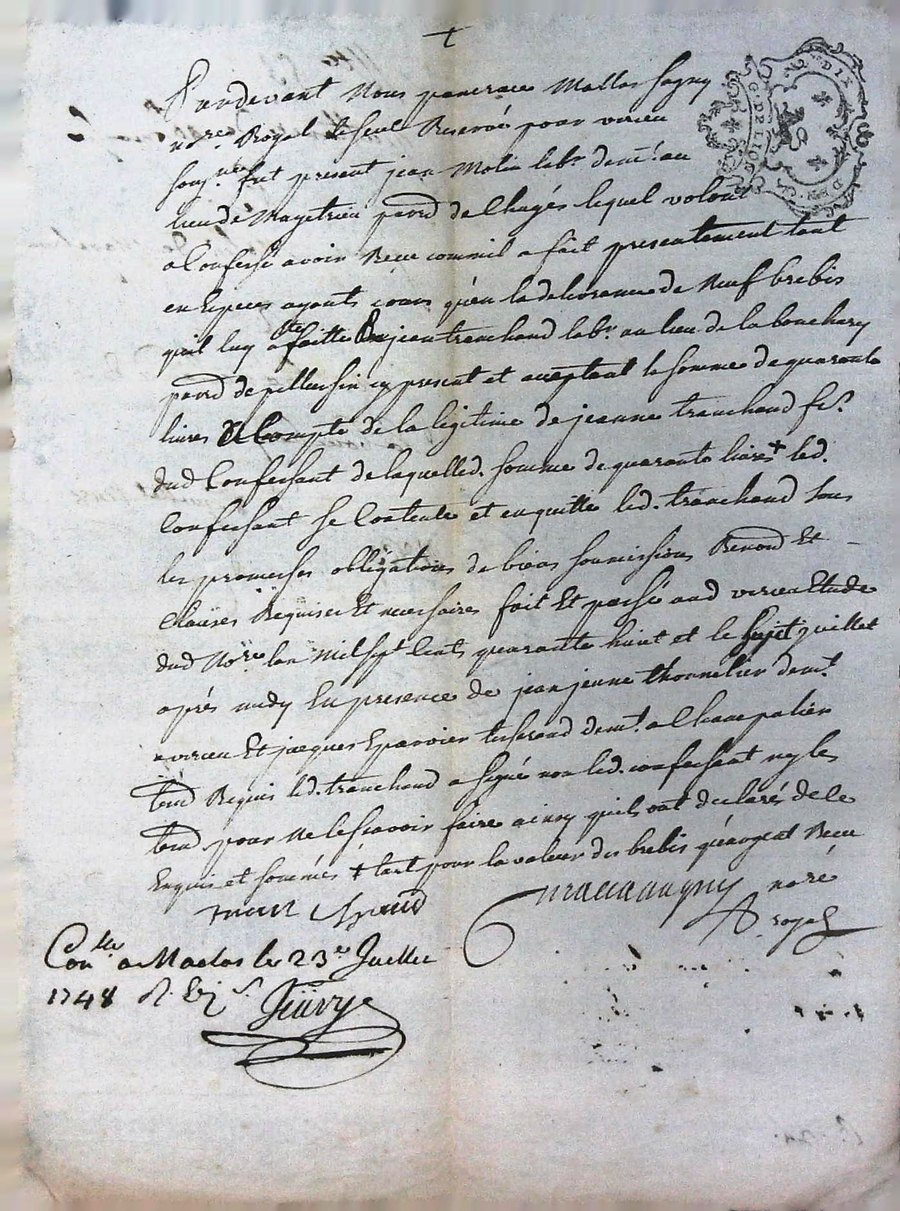 +
Pardevant Nous pancrace Mallas Sagny
nore. Royal Reservé pour virieu
sougné. fut present jean Molin labr. demt. au
lieu de Magetrieu paroid. de Chagés lequel volont
a Confessé avoir Receu comme il a fait presentement tant
en Especes ayants cours qu'en la delivrance de Neuf brebis
quil luy a faitte jean tranchand labr. au lieu de la bouchary
paroid. de pellussin cy present et acceptant la somme de quarante
livres a Compte de la legitime de jeanne tranchand fe.
dud Confessant de laquelled. somme de quarante livres + led.
Confessant se Contente et en quitte led. tranchand sous
les promesses obligations de biens soumissions Renond. Et
Clauses Requises Et necessaires fait Et passé aud virieu Etude
dud Nore. lan Mil sept Cents quarante huit et le juillet
aprés midy En presence de jean jeune thonnelier demt.
a virieu Et jacques Epanvier tisserand demt. a Champalier
Requis led. tranchand a signé non led. confessant ny les
pour Ne le sçavoir faire ainsy quils ont declarés de le
Enquis et sommés + tant pour la valeur des brebis qu'argent Receu
noré
royal
Conlle a Maclas le 23e Juillet
1748